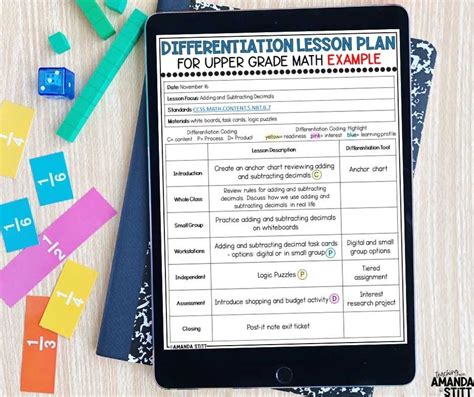 DIFFERENTIATION LESSON PLAN
FOR UPPER GRADE MATH EXAMPLE
Date: November 16
Lesson Focus: Adding and Subtracting Decimals
Standards: CCSS.MATH.CONTENT.5.NBT.B.7
Materials: white boards, task cards, logic puzzles
Differentiation Coding
C= content P= Process D= Product
Differentiation Coding Highlight
yellow= readiness pink= interest blue= learning profile
Lesson Description
Differentiation Tool
Introduction
Create an anchor chart reviewing adding
and subtracting decimals C
Anchor chart
Whole Class
Review rules for adding and subtracting
decimals. Discuss how we use adding
and subtracting decimals in real life
Small Group
Practice adding and subtracting decimals
on whiteboards
Workstations
Adding and subtracting decimal task cards
- options digital or in small group P
Digital and small
group options
Independent
Logic Puzzles P
Tiered
assignment
Assessment
Introduce shopping and budget activity D
Interest
research project
Closing
Post-it note exit ticket
©AMANDA STITT
1/8
1/6
1/2
1/4
1/3
teaching with
AMANDA
STITT